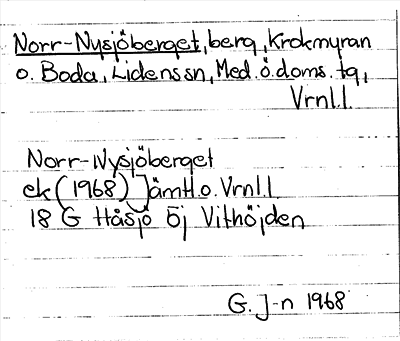 Norr-Nysjöberget, berg, Krokmyran
o. Boda, Lidens sn, Med. ö. doms. tg,
Vrnl.l.
Norr-Nysjöberget
ek (1968) Jämtl. o. Vrnl.l
18 G Håsjö Öj Vithöjden
G. J-n 1968